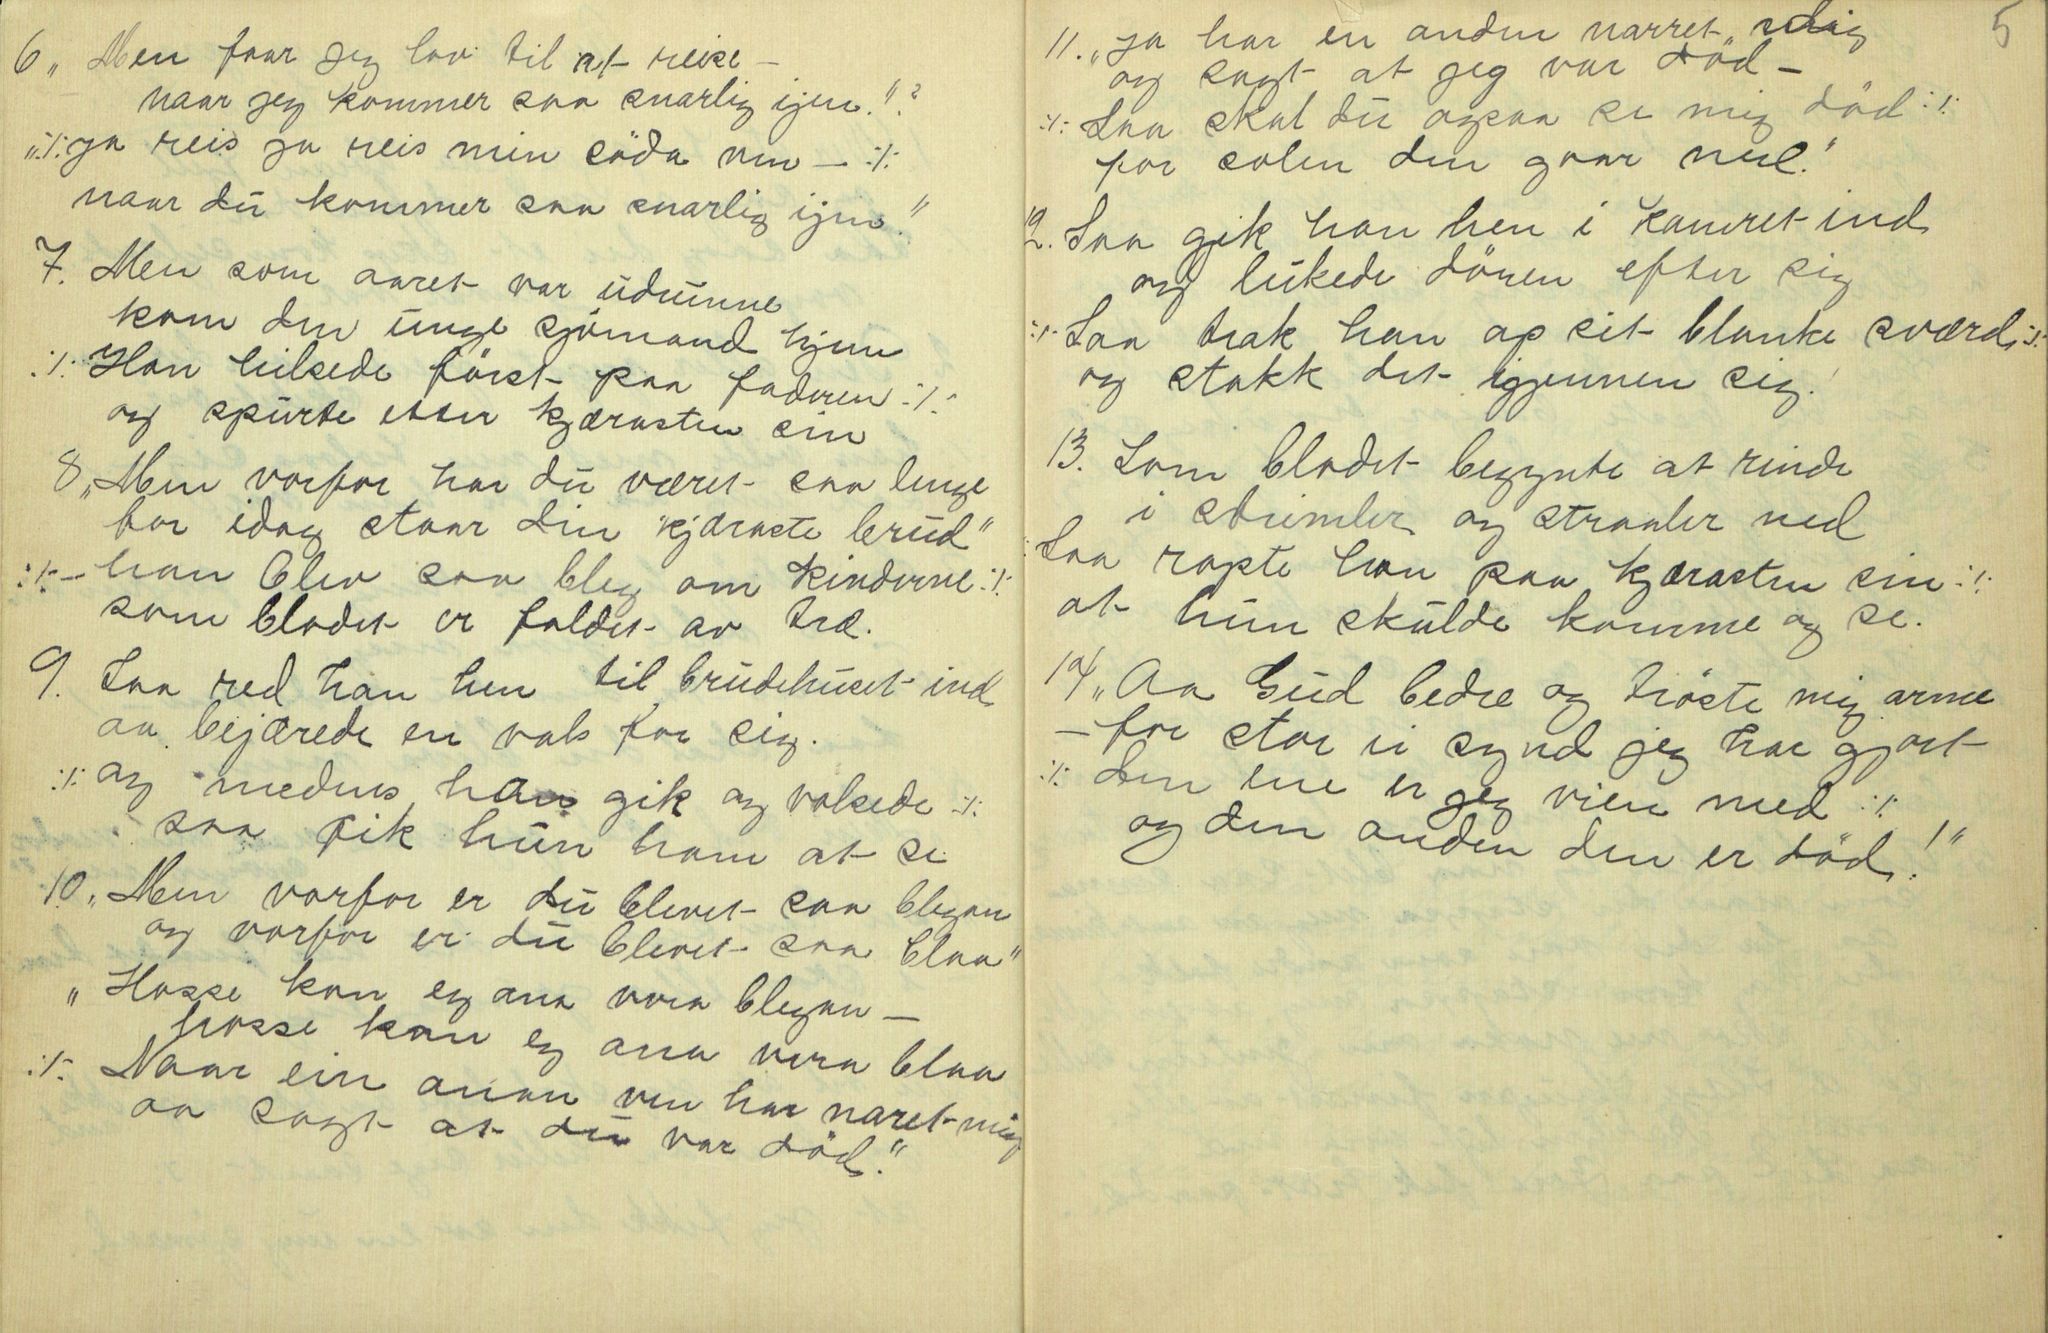 6 „Men faar jeg lov til at reise –
naar jeg kommer saa snarlig igen."?
„:/: ja reis ja reis min söda ven – :/:
naar dū kommer saa snarlig igen."
7. Men som aaret var ūdrūnne
kom den ūnge sjömand hjem
:/: Han hilsede först paa faderen :/:
og spūrte etter kjærasten sin
8 „Men vorfor har dū været saa lenge
for idag staar din kjæraste brūd"
:/: – han blev saa bleg om kinderne :/:
som bladet er faldet av træ.
9. Saa red han hen til brūdehūset ind
aa bejærede en vals for sig.
:/: og medens han gik og valsede :/:
saa fik hūn ham at se
10. „Men vorfor er dū blevet saa blegan
og vorfor er dū blevet saa blaa"
„Hosse kan eg ana vera blegan –
hosse kan eg ana vera blaa
:/: Naar ein anan ven har naret mig
aa sagt at dū var död."
5
11. „ja har en anden narret dig
og sagt at jeg var död –
:/: Saa skal dū ogsaa se mig död :/:
før solen den gaar ned."
12. Saa gik han hen i kamret ind
og lūkede dören efter sig
:/: Saa trak han op sit blanke sværd :/:
og stakk det igjennem sig.
13. Som blodet begynte at rinde
i strimler og straaler ned
: Saa ropte han paa kjærasten sin :/:
at hūn skūlde komme og se.
14 „Aa Gūd bedre og tröste mig arme
– for stor ei synd jeg har gjort
:/: den ene er jeg vien med :/:
og den anden den er död!"